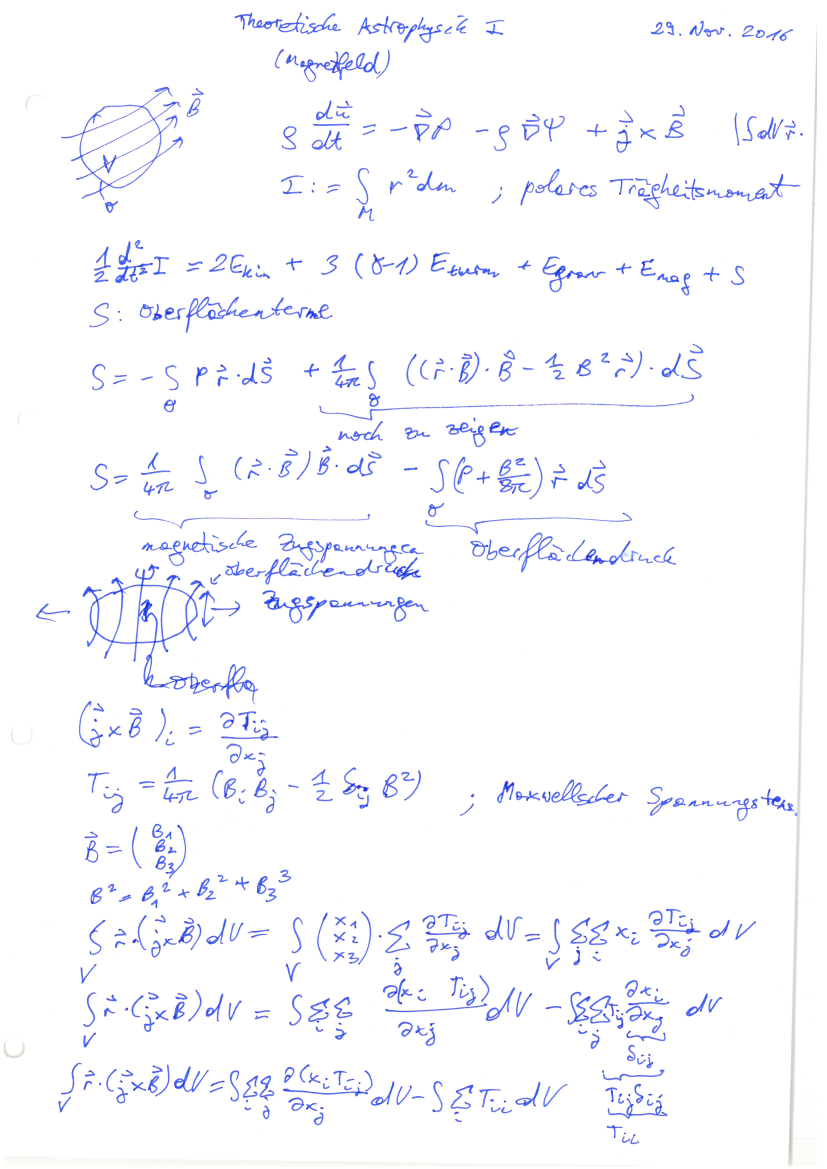 Theoretische Astrophysik I 29. Nov. 2016
(Magnetfeld)
B⃗
V
σ
ρ du⃗/dt = -∇⃗P - ρ∇⃗Ψ + j⃗ × B⃗ |∫dV r⃗·
I := ∫_M r² dm ; polares Trägheitsmoment
1/2 d²/dt² I = 2E_kin + 3 (γ-1) E_therm + E_grav + E_mag + S
S: Oberflächenterme
S = -∫_σ P r⃗·dS⃗ + 1/4π ∫_σ ((r⃗·B⃗)·B⃗ - 1/2 B² r⃗)·dS⃗
noch zu zeigen
S = 1/4π ∫_σ (r⃗·B⃗) B⃗·dS⃗ - ∫_σ (P + B²/8π) r⃗ dS⃗
magnetische Zugspannungen Oberflächendruck
Oberflächendruck
Zugspannungen
Oberflä
(j⃗×B⃗)_i = ∂T_ij/∂x_j
T_ij = 1/4π (B_i B_j - 1/2 δ_ij B²) ; Maxwellscher Spannungstens.
B⃗ = (B₁ B₂ B₃)
B² = B₁² + B₂² + B₃³
∫_V r⃗·(j⃗×B⃗) dV = ∫_V (x₁ x₂ x₃) · Σ_j ∂T_ij/∂x_j dV = ∫_V Σ_j Σ_i x_i ∂T_ij/∂x_j dV
∫_V r⃗·(j⃗×B⃗) dV = ∫ Σ_i Σ_j ∂(x_i T_ij)/∂x_j dV - ∫ Σ_i Σ_j T_ij ∂x_i/∂x_j dV
δ_ij
∫_V r⃗·(j⃗×B⃗) dV = ∫ Σ_i Σ_j ∂(x_i T_ij)/∂x_j dV - ∫ Σ_i T_ii dV T_ij δ_ij
T_ii